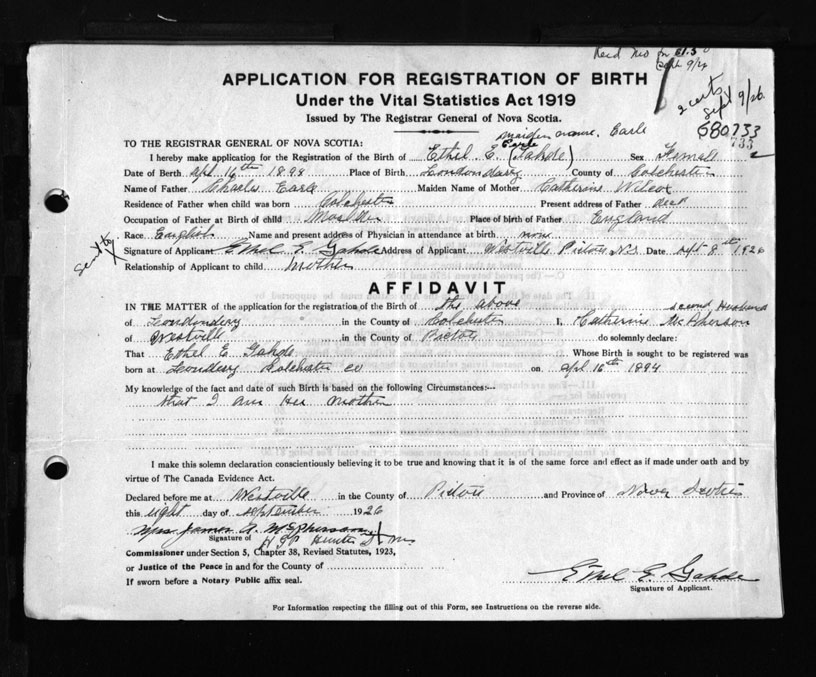 Recd
9/26
APPLICATION FOR REGISTRATION OF BIRTH
Under the Vital Statistics Act 1919
2 certs
Sept 9/26
Issued by The Registrar General of Nova Scotia.
maiden name. Earle
680733
TO THE REGISTRAR GENERAL OF NOVA SCOTIA:
Earle
733
I hereby make application for the Registration of the Birth of Ethel E. (Gahde) Sex Female
Date of Birth Apl 16th Place of Birth Londondary County of Colchester
Name of Father Charles Earle Maiden Name of Mother Catherine Wilcox
Residence of Father when child was born Colchester Present address of Father dead
Occupation of Father at Birth of child Place of birth of Father England
Race English Name and present address of Physician in attendance at birth none
Signature of Applicant Ethel E. Gahde Address of Applicant Westville Pictou N.S Date Sept 8th 1926
Relationship of Applicant to child Mother
AFFIDAVIT
IN THE MATTER of the application for the registration of the Birth of the above second Husband
of Londonderry in the County of Colchester I, Catherine McPherson
of Westville in the County of Pictou do solemnly declare:
That Ethel E Gahde Whose Birth is sought to be registered was
born at Colchester co on Apl 16th 1894
My knowledge of the fact and date of such Birth is based on the following Circumstances:—
that I am Her Mother
I make this solemn declaration conscientiously believing it to be true and knowing that it is of the same force and effect as if made under oath and by
virtue of The Canada Evidence Act.
Declared before me at Westville in the County of Pictou and Province of Nova Scotia
this eight day of September 1926
Mrs James A. McPherson
Signature of
Commissioner under Section 5, Chapter 38, Revised Statutes, 1923,
or Justice of the Peace in and for the County of
Ethel E. Gahde
If sworn before a Notary Public affix seal.
Signature of Applicant.
For Information respecting the filling out of this Form, see Instructions on the reverse side.